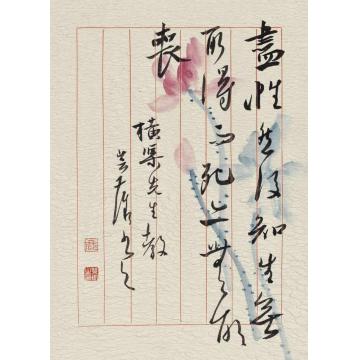 盡性然後知生無
所得則死之無所
喪
橫渠先生教